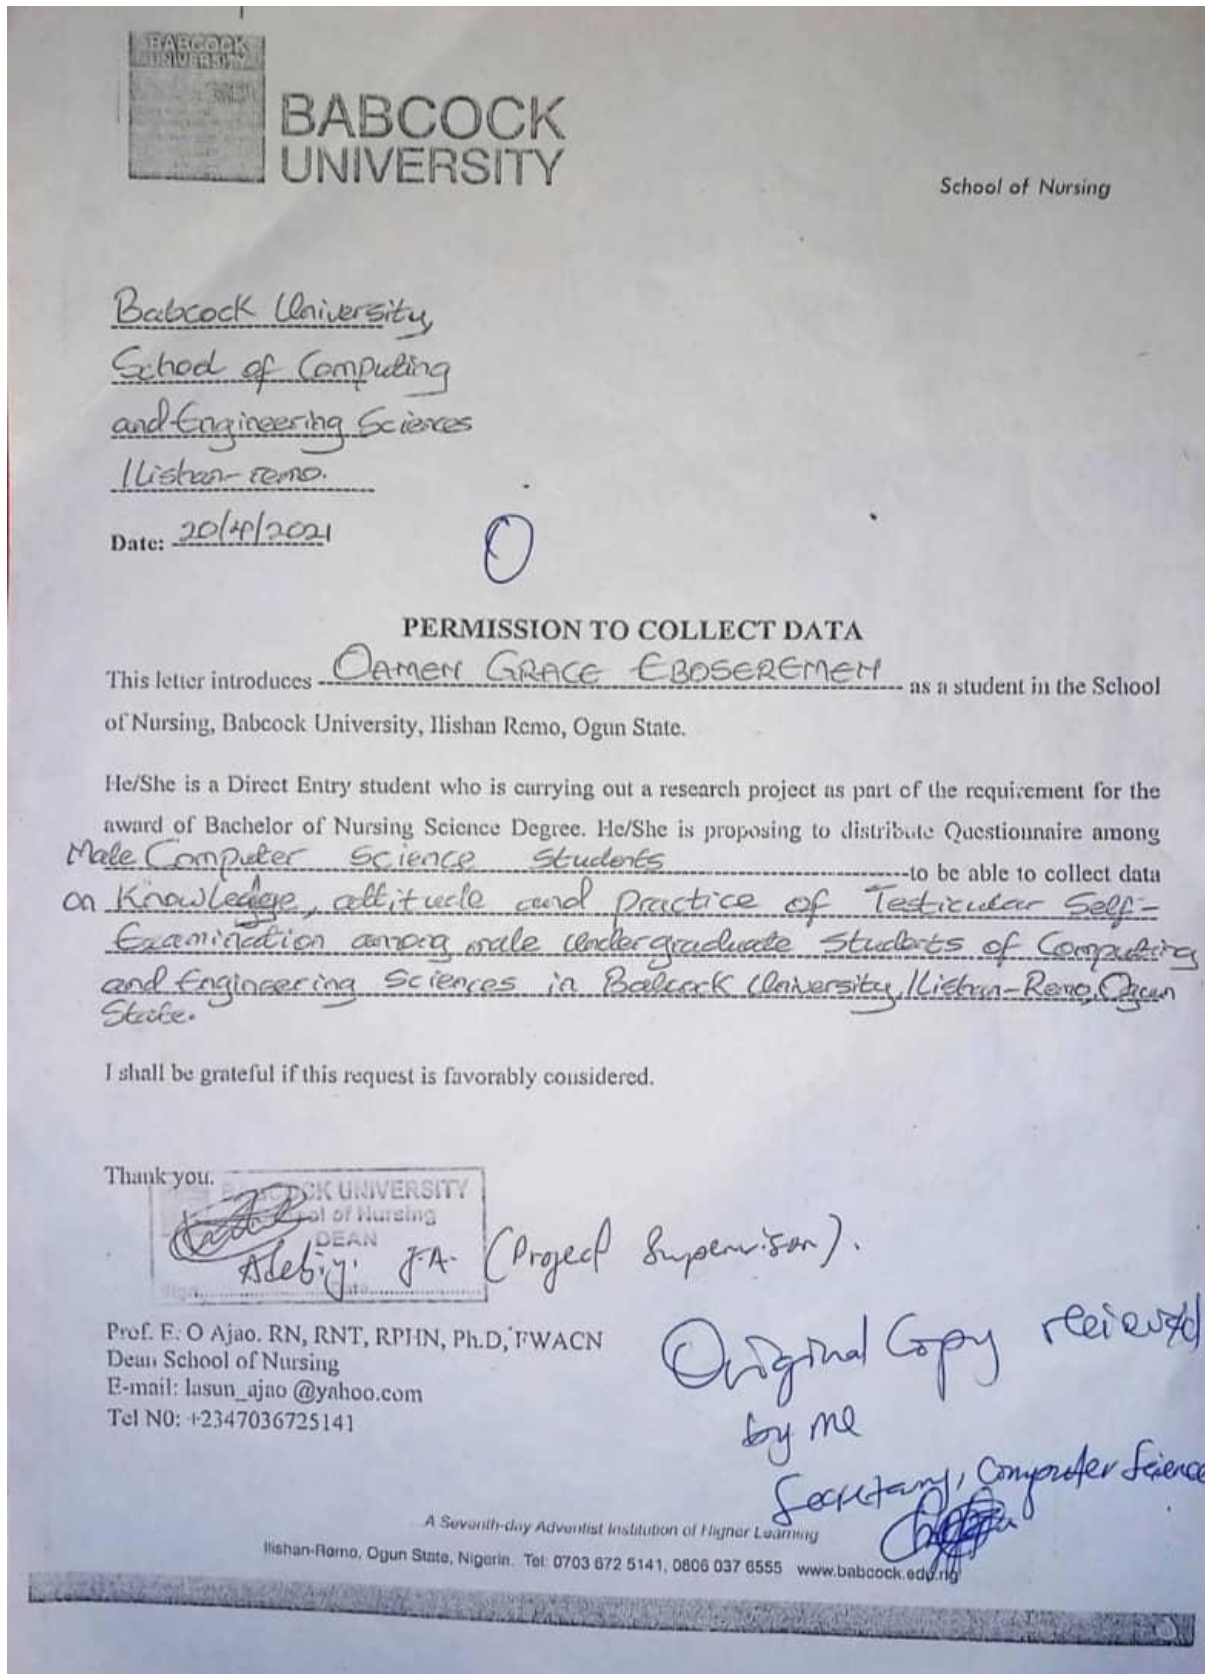 BABCOCK
UNIVERSITY
BABCOCK
UNIVERSITY
School of Nursing
Babcock University,
School of Computing
and Engineering Sciences
Ilishan-remo.
Date: 20/4/2021
O
PERMISSION TO COLLECT DATA
This letter introduces OAMEN GRACE EBOSEREMEN as a student in the School
of Nursing, Babcock University, Ilishan Remo, Ogun State.
He/She is a Direct Entry student who is carrying out a research project as part of the requirement for the
award of Bachelor of Nursing Science Degree. He/She is proposing to distribute Questionnaire among
Male Computer Science Students to be able to collect data
on Knowledge, attitude and practice of Testicular Self-
Examination among male undergraduate students of Computing
and Engineering Sciences in Babcock University, Ilishan-Remo, Ogun
State.
I shall be grateful if this request is favorably considered.
Thank you.
BABCOCK UNIVERSITY
School of Nursing
DEAN
Adebiyi J.A. (Project Supervisor).
Prof. E. O Ajao. RN, RNT, RPHN, Ph.D, FWACN
Dean School of Nursing
E-mail: lasun_ajao @yahoo.com
Tel N0: +2347036725141
Original Copy recieved
by me
Secretary, Computer Science
A Seventh-day Adventist Institution of Higher Learning
Ilishan-Remo, Ogun State, Nigeria. Tel: 0703 672 5141, 0806 037 6555 www.babcock.edu.ng